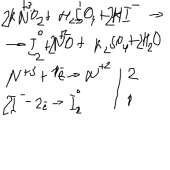 2KN⁺³O₂ + H₂SO₄ + 2KI⁻ →
→ I₂⁰ + 2N⁺²O + K₂SO₄ + 2H₂O
N⁺³ + 1ē → N⁺² | 2
2I⁻ - 2ē → I₂⁰ | 1